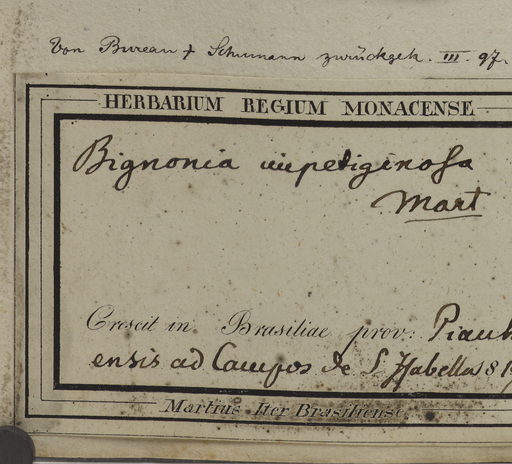 Von Bureau + Schumann zurückgek. III. 97.
HERBARIUM REGIUM MONACENSE
Bignonia impetiginosa
Mart
Crescit in Brasiliae prov: Piauh
ensis ad Campos de S. Isabella 81
Martius Iter Brasiliense